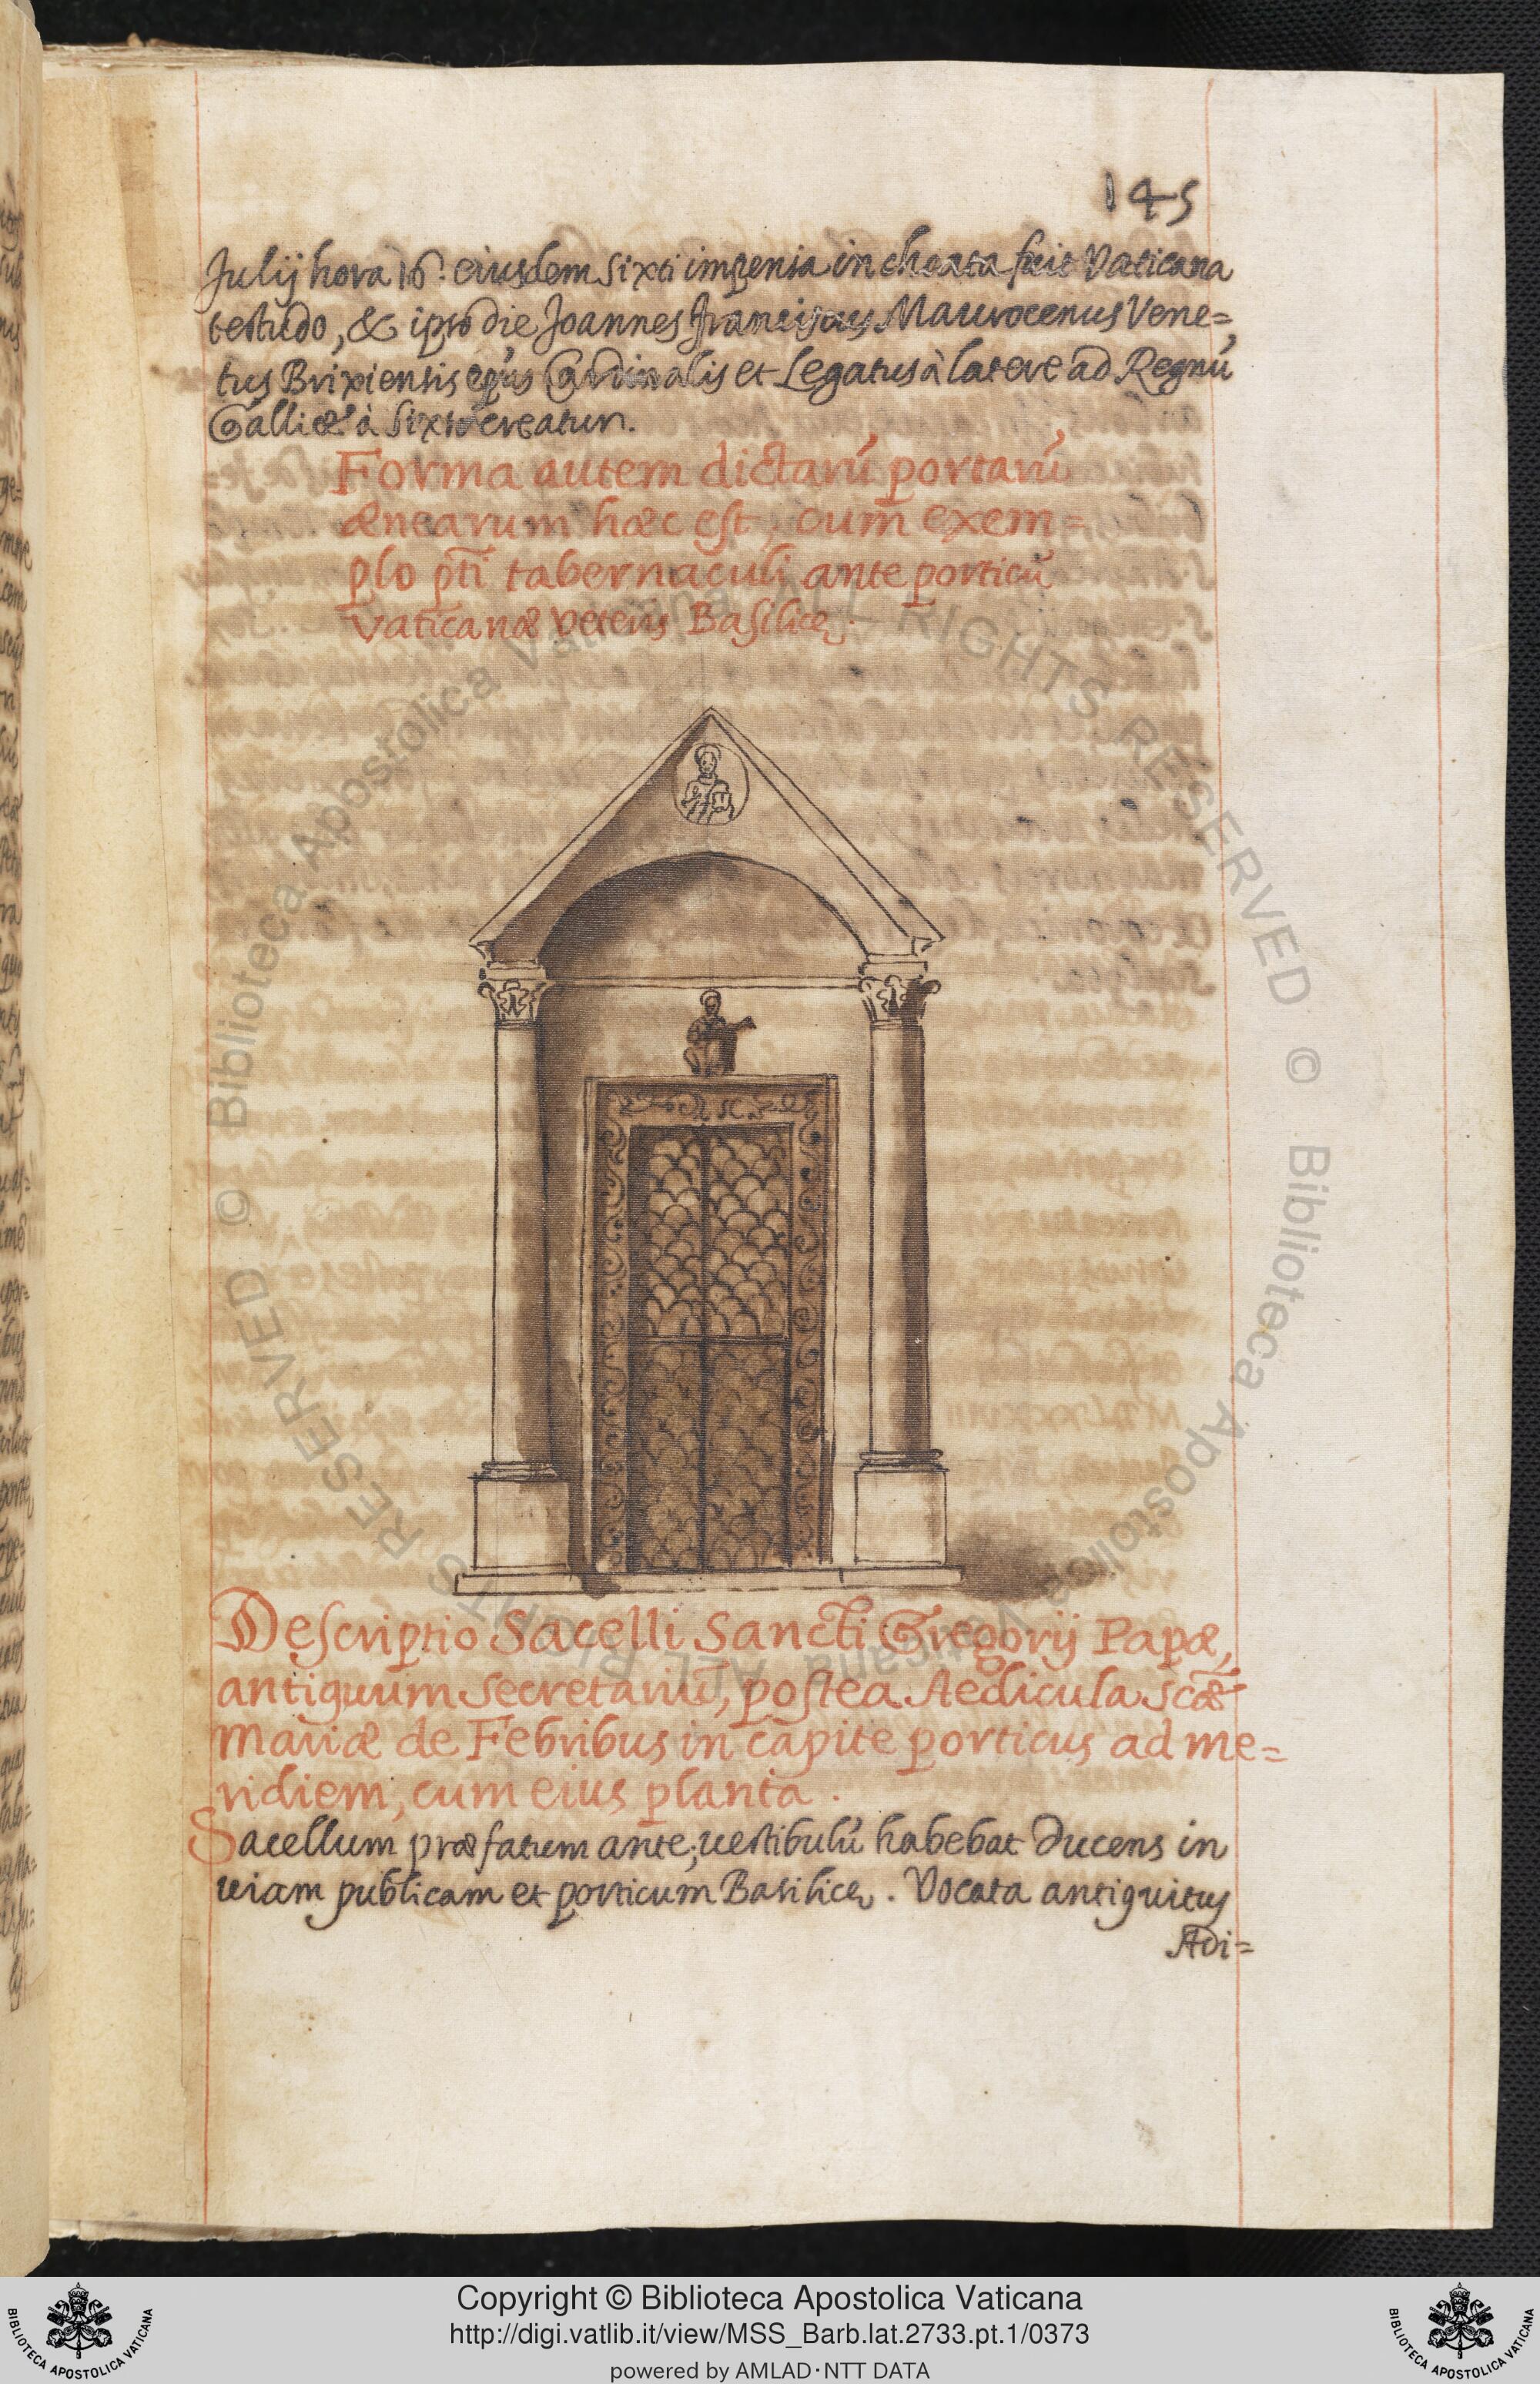 145
Julij hora 16. eiusdem Sixti impensa inchoata fuit Vaticana
testudo, & ipso die Joannes Franciscus Maurocenus Vene=
tus Brixiensis epũs Cardinalis et Legatus à latere ad Regnũ
Galliæ à Sixto creatur.
Forma autem dictarũ portarũ
ænearum hæc est, cum exem=
plo p̃ti tabernaculi ante porticũ
Vaticanæ veteris Basilicę.
Descriptio Sacelli Sancti Gregorij Papæ,
antiquum secretariũ, postea Aedicula scæ̃
Mariæ de Febribus in capite porticus ad me=
ridiem, cum eius planta.
Sacellum præfatum ante, uestibulũ habebat ducens in
uiam publicam et porticum Basilicę. Vocata antiquitus
Adi=
© Biblioteca Apostolica Vaticana ALL RIGHTS RESERVED
© Biblioteca Apostolica Vaticana ALL RIGHTS RESERVED
BIBLIOTECA APOSTOLICA VATICANA
Copyright © Biblioteca Apostolica Vaticana
http://digi.vatlib.it/view/MSS_Barb.lat.2733.pt.1/0373
powered by AMLAD·NTT DATA
BIBLIOTECA APOSTOLICA VATICANA